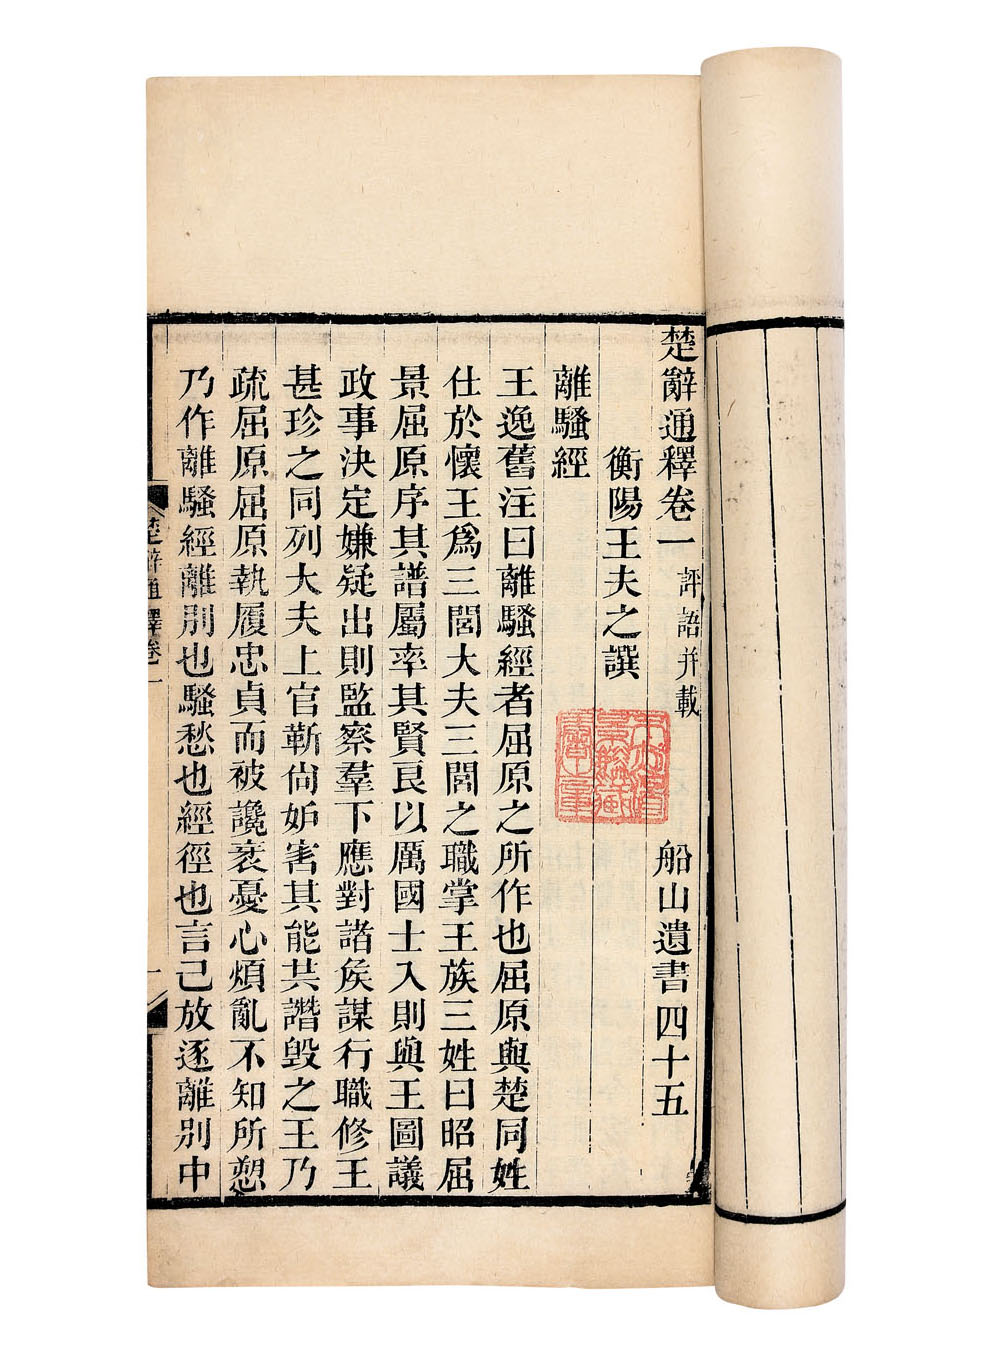 楚辭通釋卷一 評語并載 船山遺書四十五
衡陽王夫之譔
離騷經
王逸舊注曰離騷經者屈原之所作也屈原與楚同姓
仕於懷王爲三閭大夫三閭之職掌王族三姓曰昭屈
景屈原序其譜屬率其賢良以厲國士入則與王圖議
政事決定嫌疑出則監察羣下應對諸侯謀行職修王
甚珍之同列大夫上官靳尙妒害其能共譖毀之王乃
疏屈原屈原執履忠貞而被讒衺憂心煩亂不知所愬
乃作離騷經離別也騷愁也經徑也言己放逐離別中
楚辭通釋卷一
一